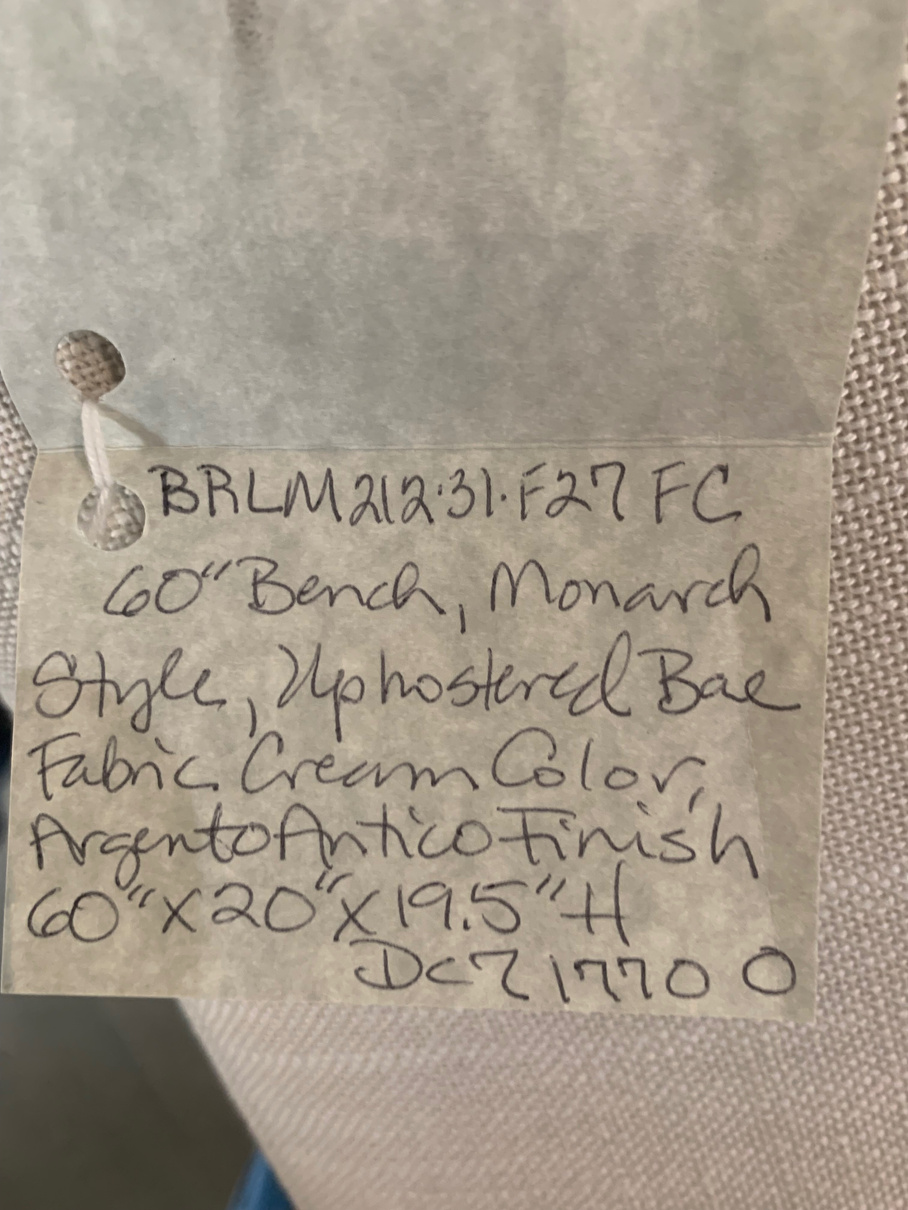 BRLM212.31.F27 FC
60" Bench, Monarch
Style, Uphostered Bae
Fabric Cream Color,
Argento Antico Finish
60" X 20" X 19.5" H
DCZ 1770 O